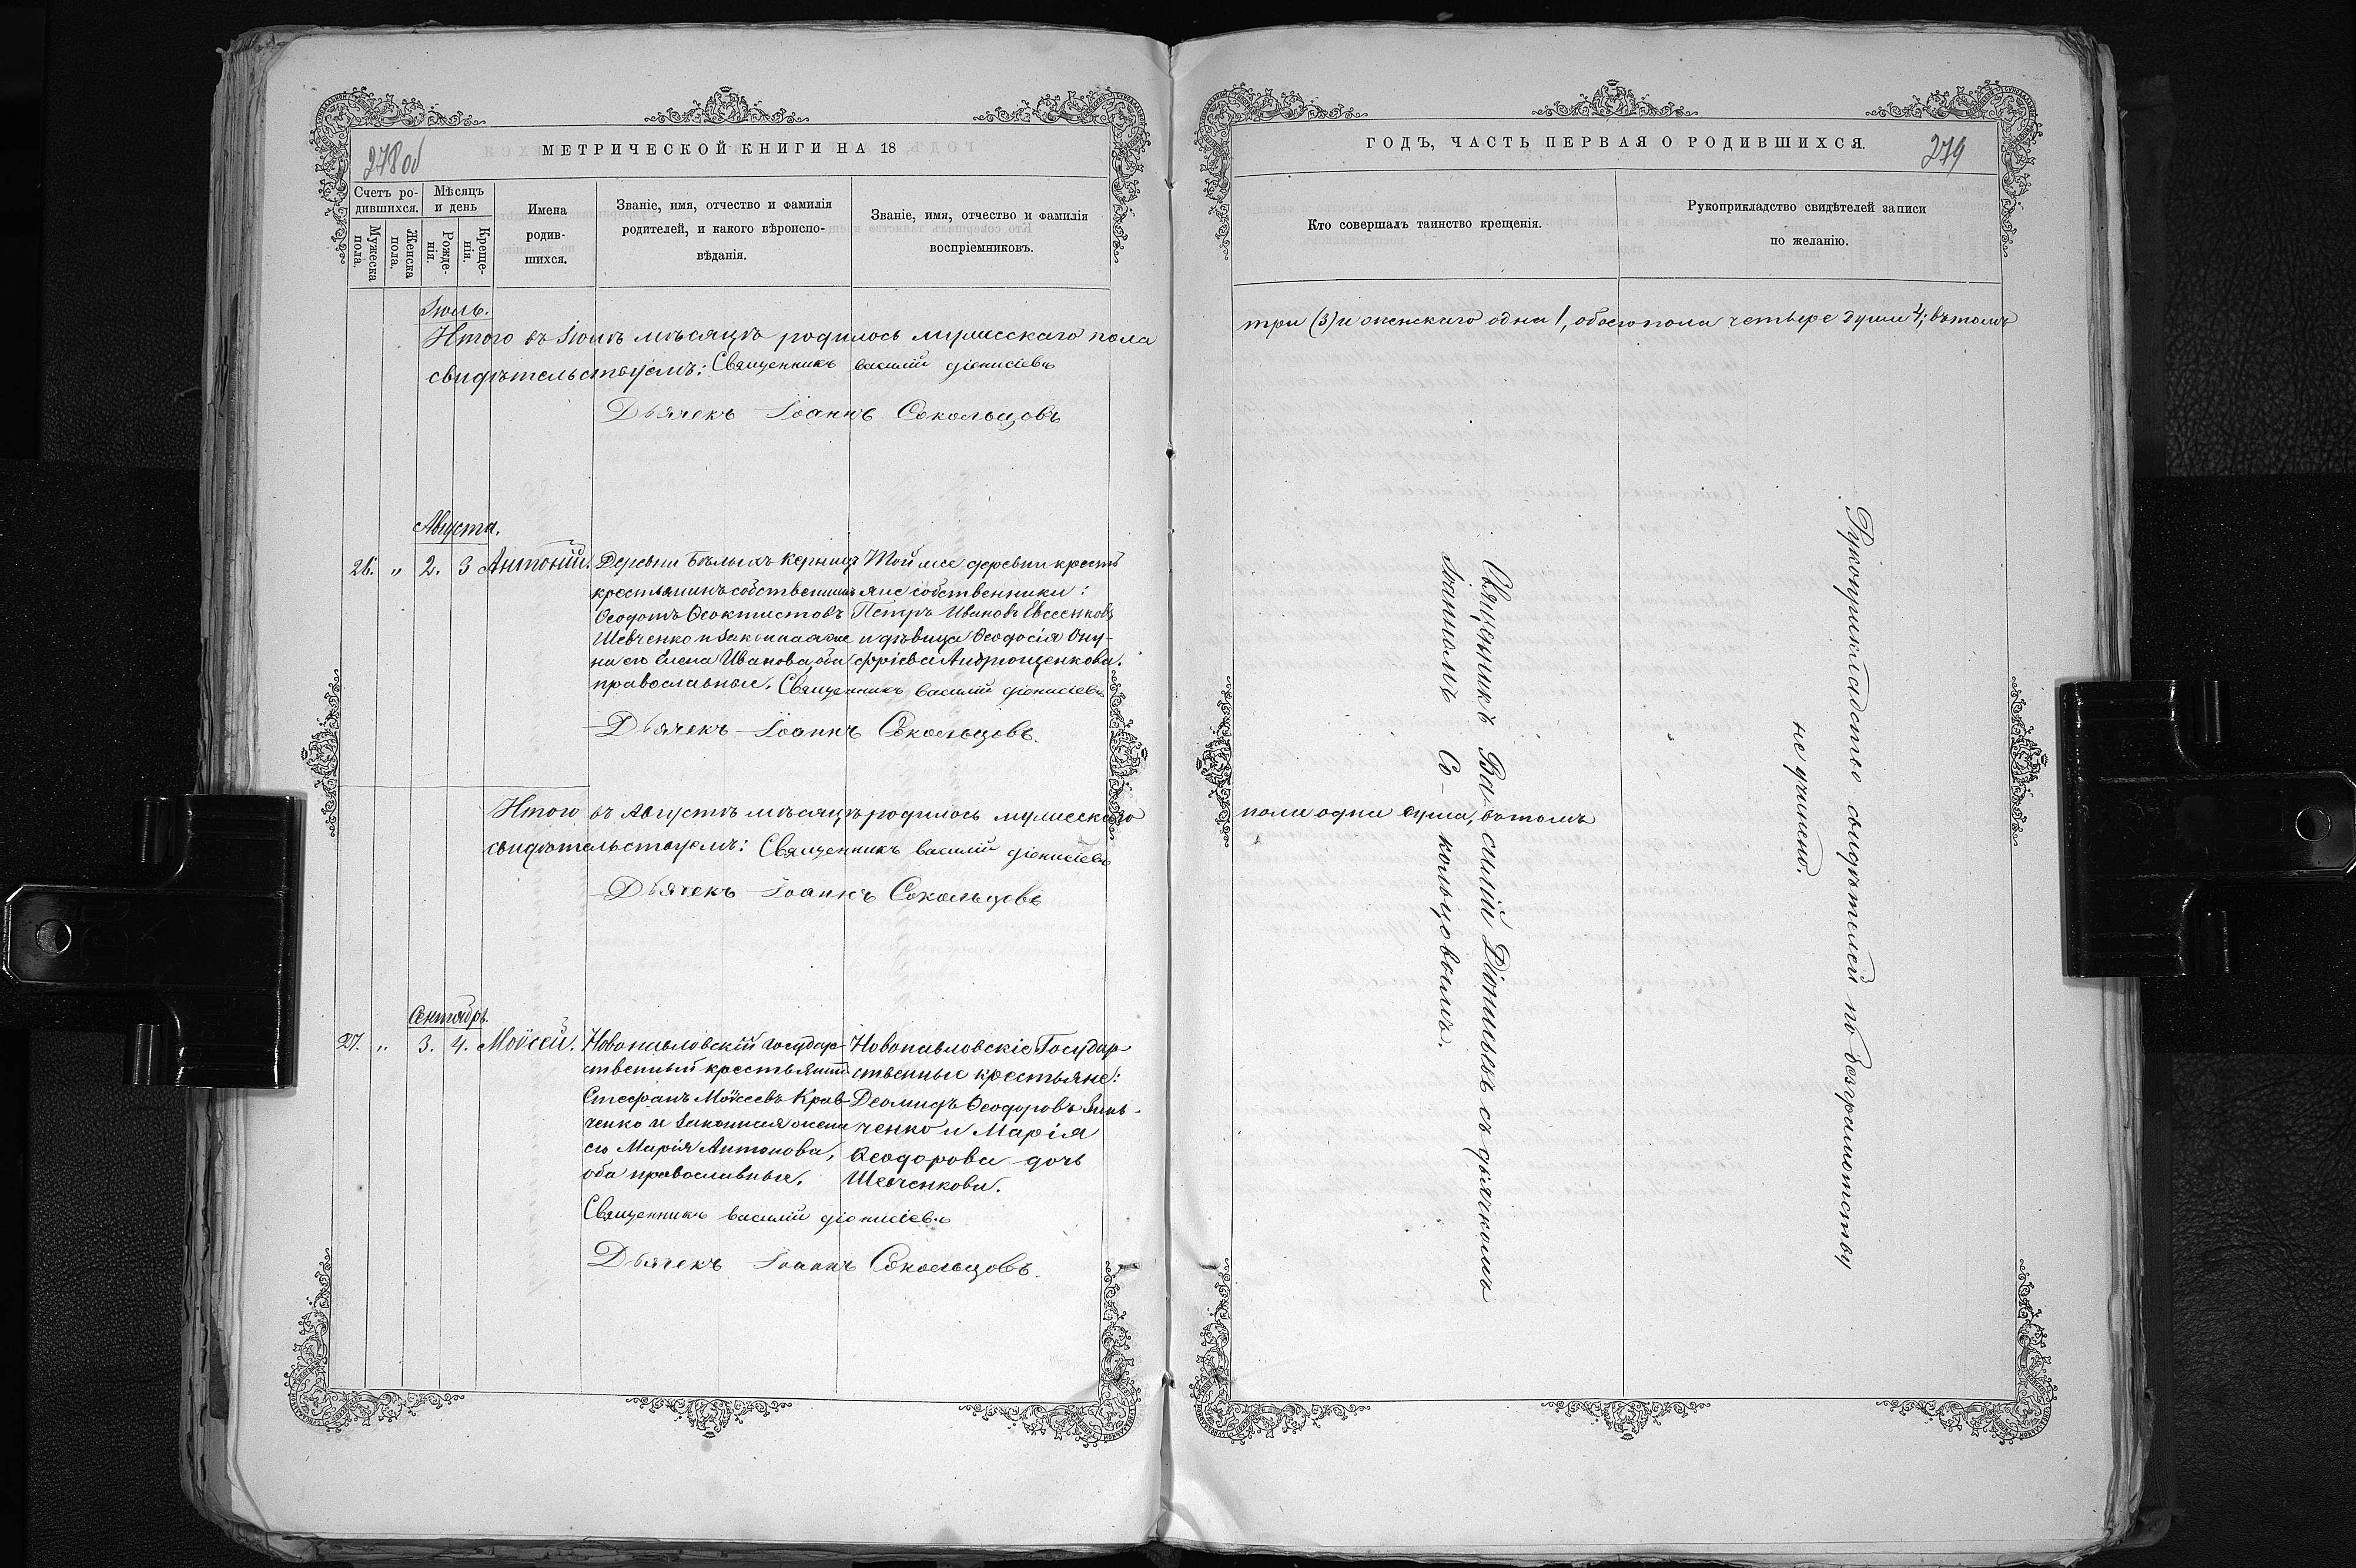 278 об
МЕТРИЧЕСКОЙ КНИГИ НА 18
Счетъ ро-
дившихся.
Мѣсяцъ
и день
Мужеска
пола.
Женска
пола.
Рожде-
нія.
Креще-
нія.
Имена
родив-
шихся.
Званіе, имя, отчество и фамилія
родителей, и какого вѣроиспо-
вѣданія.
Званіе, имя, отчество и фамилія
воспріемниковъ.
Іюль.
Итого въ Іюлѣ мѣсяцѣ родилось мужескаго пола
свидѣтельствуемъ: Священникъ василій діонисіевъ
Дьячекъ Іоаннъ Сокольцовъ
Августа.
26. „ 2. 3 Антоній.
Деревни Бѣлыхъ Керниц
крестьянинъ собственникъ
Ѳеодотъ Ѳеоктистовъ
Шевченко и законная же
на его Елена Иванова, оба
православные.
Той же деревни кресть
яне собственники:
Петръ Ивановъ Евсеенковъ
и дѣвица Ѳеодосія Ону-
фріева Андрющенкова.
Священникъ василій діонисіевъ
Дьячекъ Іоаннъ Сокольцовъ.
Итого въ Августѣ мѣсяцѣ родилось мужескаго
свидѣтельствуемъ: Священникъ василій діонисіевъ
Дьячекъ Іоаннъ Сокольцовъ
Сентябрь.
27. „ 3. 4. Моѵсей.
Новопавловскій государ-
ственный крестьянинъ
Стефанъ Моѵсеевъ Крав-
ченко и законная жена
его Марія Антонова,
оба православные.
Новопавловскіе Государ
ственные крестьяне:
Деомидъ Ѳеодоровъ Зинь-
ченко и Марія
Ѳеодорова дочь
Шевченкова.
Священникъ василій діонисіевъ
Дьячекъ Іоаннъ Сокольцовъ.
ГОДЪ, ЧАСТЬ ПЕРВАЯ О РОДИВШИХСЯ.
279
Кто совершалъ таинство крещенія.
Рукоприкладство свидѣтелей записи
по желанію.
три (3) и женскаго одна 1, обоего пола четыре души 4; въ томъ
пола одна душа, въ томъ
Священникъ Василій Діонисіевъ съ дьячкомъ
Іоанномъ Со-кольцовымъ.
Рукоприкладство свидѣтелей по безграмотству
не учинено.